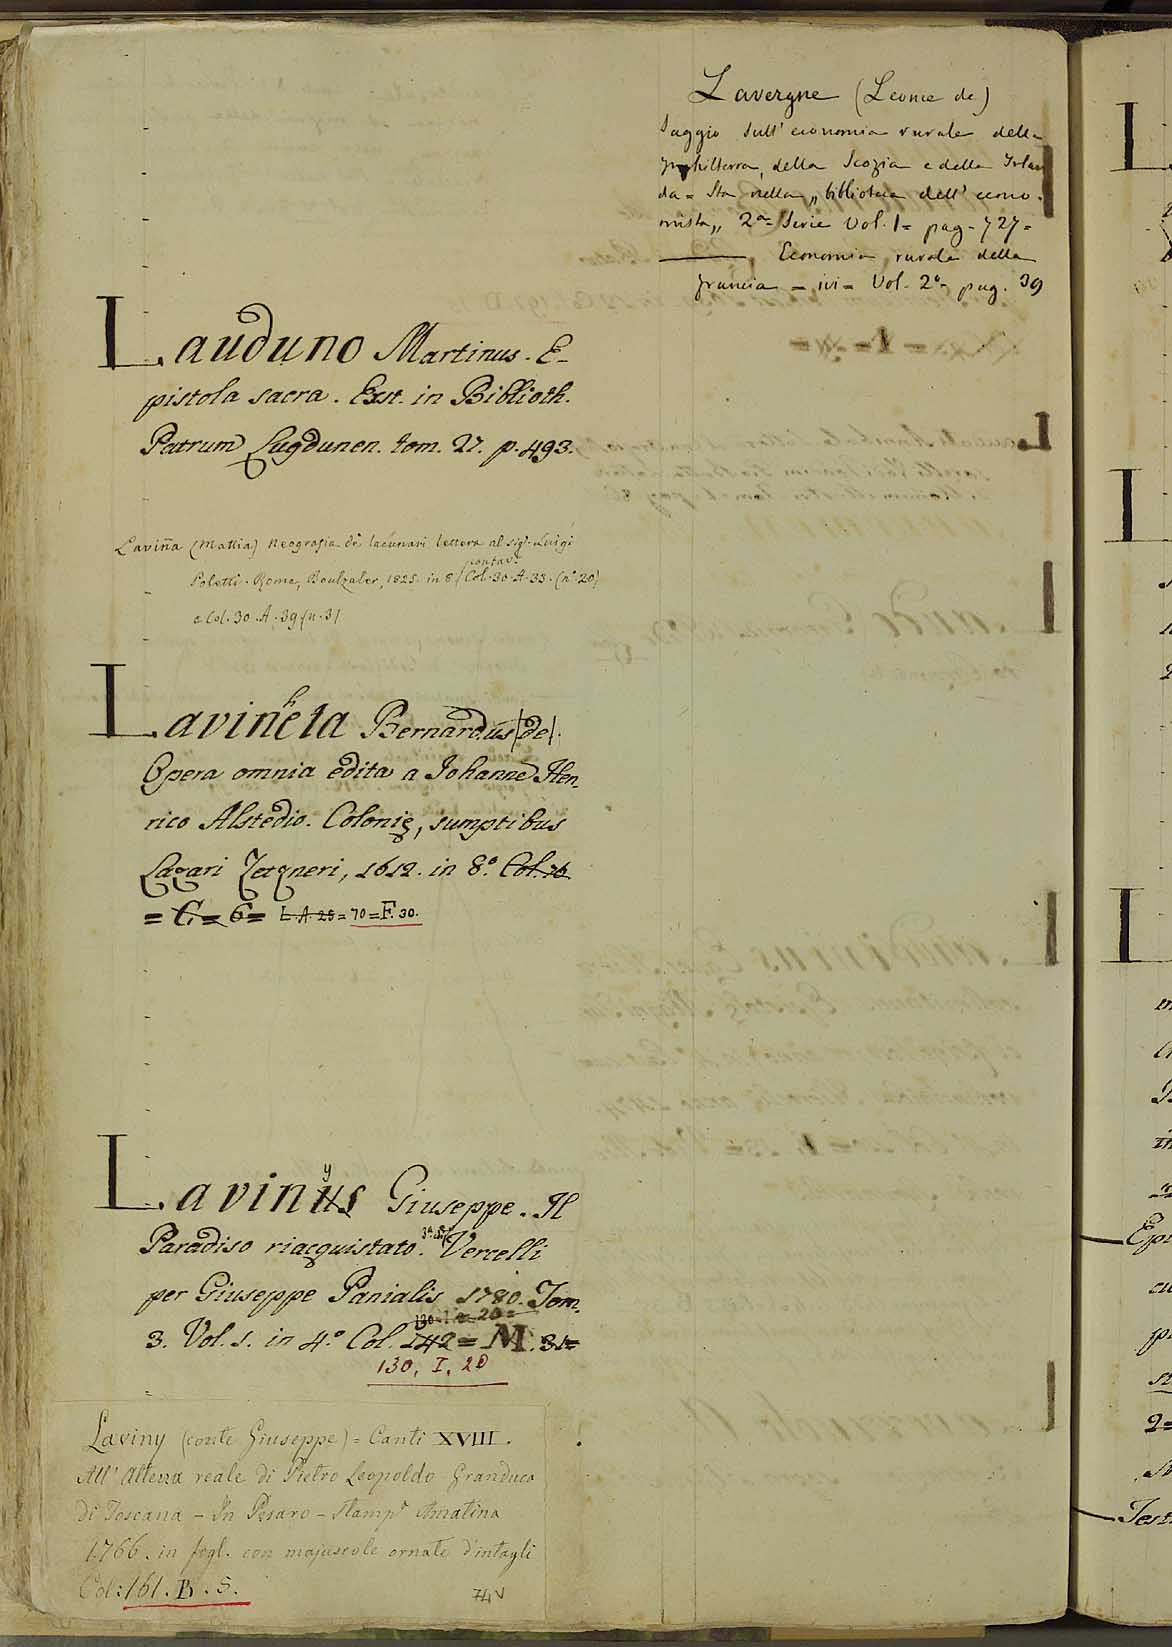 Lavergne (Leonce de)
Saggio sull' economia rurale della
Inghilterra, della Scozia e della Irlan
da = Sta nella „ biblioteca dell' econo-
mista „ 2a = Serie Vol. 1 = pag - 727 =
Economia rurale della
francia = ivi = Vol. 2° = pag. 39
Lauduno Martinus. E-
pistola sacra. Exst. in Biblioth.
Patrum Lugdunen. tom. 27. p. 493.
Laviña (Mattia) Neografia de' lacunari lettera al sigr. Luigi
Poletti. Roma, Boulzaler, 1825. in 8. / Col. 30. A. 33. (n° 20)
e Col. 30. A. 39 (n. 3)
Lavinheta Bernardus (de).
Opera omnia edita a Johanne Hen-
rico Alstedio. Colonię, sumptibus
Lazari Zetzneri, 1612. in 8.° Col. 76
= C. = 6 = L. A. 25 = 70 = F. 30.
Laviny Giuseppe. Il
Paradiso riacquistato. Vercelli
per Giuseppe Panialis 1780. Tom.
130 = I = 20 =
3. Vol. 1. in 4.° Col. 142 = M. 31 =
130, I, 20
Laviny (conte Giuseppe) = Canti XVIII.
All' Altezza reale di Pietro Leopoldo Granduca
di Toscana - In Pesaro - Stampa Amatina
1766. in fogl. con majuscole ornate d'intagli
Col: 161. B. 5.